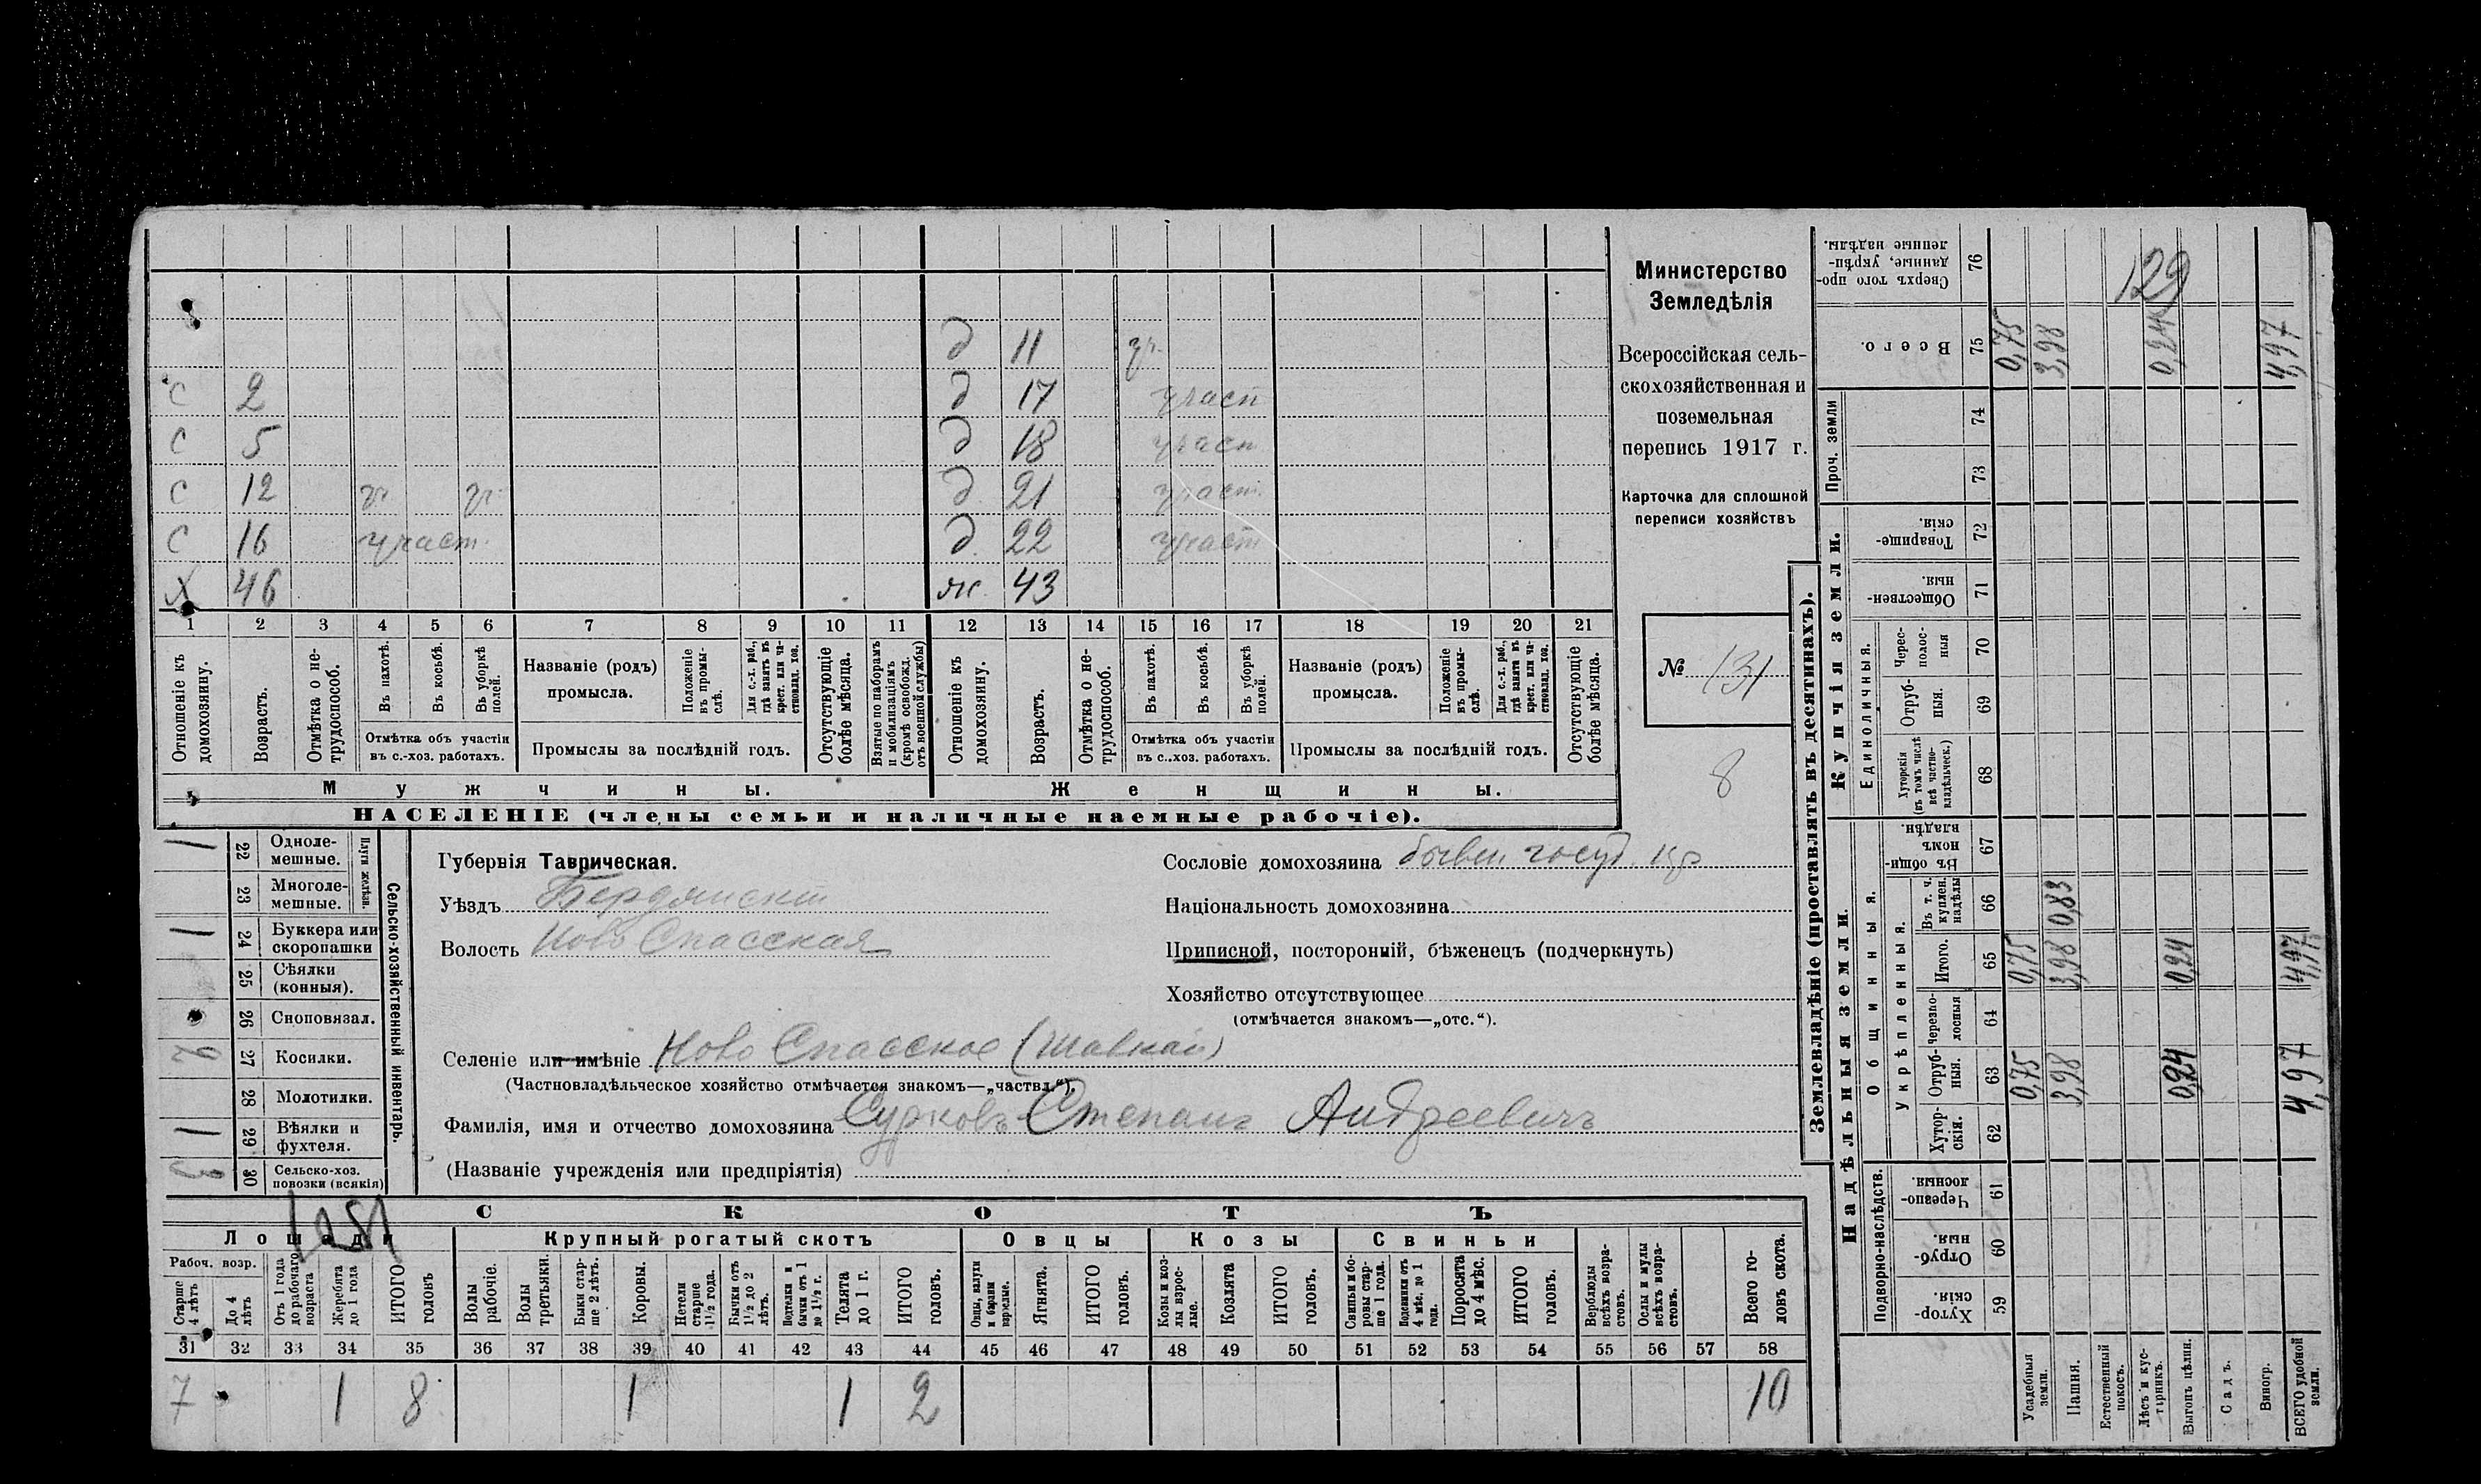 Министерство
Земледѣлія
Всероссійская сель-
скохозяйственная и
поземельная
перепись 1917 г.
Карточка для сплошной
переписи хозяйствъ
№ 131
8
д 11 уч.
С 2 д 17 участ
С 5 д 18 участ
С 12 уч. уч. д. 21 участ.
С 16 участ. д. 22 участ
Х 46 ж. 43
1 2 3 4 5 6 7 8 9 10 11 12 13 14 15 16 17 18 19 20 21
Отношеніе къ домохозяину.
Возрастъ.
Отмѣтка о не-трудоспособ.
Въ пахотѣ.
Въ косьбѣ.
Въ уборкѣ полей.
Отмѣтка объ участіи
въ с.-хоз. работахъ.
Названіе (родъ)
промысла.
Положеніе въ промы-слѣ.
Для с.-х. раб., гдѣ занятъ въ крест. или ча-стновлад. хоз.
Промыслы за послѣдній годъ.
Отсутствующіе болѣе мѣсяца.
Взятые по наборамъ и мобилизаціямъ (кромѣ освобожд. отъ военной службы)
Отношеніе къ домохозяину.
Возрастъ.
Отмѣтка о не-трудоспособ.
Въ пахотѣ.
Въ косьбѣ.
Въ уборкѣ полей.
Отмѣтка объ участіи
въ с..хоз. работахъ.
Названіе (родъ)
промысла.
Положеніе въ промы-слѣ.
Для с.-х. раб., гдѣ занята въ крест. или ча-стновлад. хоз.
Промыслы за послѣдній годъ.
Отсутствующіе болѣе мѣсяца.
Мужчины. Женщины.
НАСЕЛЕНІЕ (члены семьи и наличные наемные рабочіе).
Сельско-хозяйственный инвентарь.
Плуги желѣзн.
1 22 Одноле-мешные.
23 Многоле-мешные.
1 24 Буккера или скоропашки
25 Сѣялки (конныя).
26 Сноповязал.
27 Косилки.
28 Молотилки.
1 29 Вѣялки и фухтеля.
3 30 Сельско-хоз. повозки (всякія)
Губернія Таврическая.
Уѣздъ Бердянскій
Волость Ново Спасская
Сословіе домохозяина бывш госуд. кр
Національность домохозяина
Приписной, посторонній, бѣженецъ (подчеркнуть)
Хозяйство отсутствующее
(отмѣчается знакомъ—„отс.“).
Селеніе или имѣніе Ново Спасское (Шавкай)
(Частновладѣльческое хозяйство отмѣчается знакомъ—„частвл.“).
Фамилія, имя и отчество домохозяина Сурковъ Степанъ Андреевичъ
(Названіе учрежденія или предпріятія)
СКОТЪ
Лошади Крупный рогатый скотъ Овцы Козы Свиньи
Рабоч. возр.
Старше 4 лѣтъ
До 4 лѣтъ
Отъ 1 года до рабочаго возраста
Жеребята до 1 года
ИТОГО головъ
Волы рабочіе.
Волы третьяки.
Быки стар-ше 2 лѣтъ.
Коровы.
Нетели старше 1½ года.
Бычки отъ 1½ до 2 лѣтъ.
Подтелки и бычки отъ 1 до 1½ г.
Телята до 1 г.
ИТОГО головъ.
Овцы, валухи и бараны взрослые.
Ягнята.
ИТОГО головъ.
Козы и коз-лы взрос-лые.
Козлята
ИТОГО головъ.
Свиньи и бо-ровы стар-ше 1 года.
Подсвинки отъ 4 мѣс. до 1 года.
Поросята до 4 мѣс.
ИТОГО головъ.
Верблюды всѣхъ возра-стовъ.
Ослы и мулы всѣхъ возра-стовъ.
Всего го-ловъ скота.
31 32 33 34 35 36 37 38 39 40 41 42 43 44 45 46 47 48 49 50 51 52 53 54 55 56 57 58
7 1 8 1 1 2 10
Землевладѣніе (проставлять въ десятинахъ).
Купчія земли.
Надѣльныя земли.
Проч. земли
Единоличныя.
Общинныя.
Укрѣпленныя.
Подворно-наслѣдств.
Сверхъ того про-данные, укрѣп-ленные надѣлы. 76 129
Всего. 75 0,75 3,98 0,24 4,97
74
73
Товарище-скія. 72
Обществен-ныя. 71
Черес-полос-ныя 70
Отруб-ныя. 69
Хуторскія (въ томъ числѣ всѣ частно-владѣльческ.) 68
Въ общи-номъ владѣн. 67
Въ т. ч. куплен. надѣлы 66 0,83
Итого. 65 0,75 3,98 0,24 4,97
Черезпо-лосныя 64
Отруб-ныя. 63 0,75 3,98 0,24 4,97
Хутор-скія. 62
Черезпо-лосныя 61
Отруб-ныя. 60
Хутор-скія. 59
Усадебныя земли.
Пашня.
Естественный покосъ.
Лѣсъ и кус-тарникъ.
Выгонъ цѣлин.
Садъ.
Виногр.
ВСЕГО удобной земли.